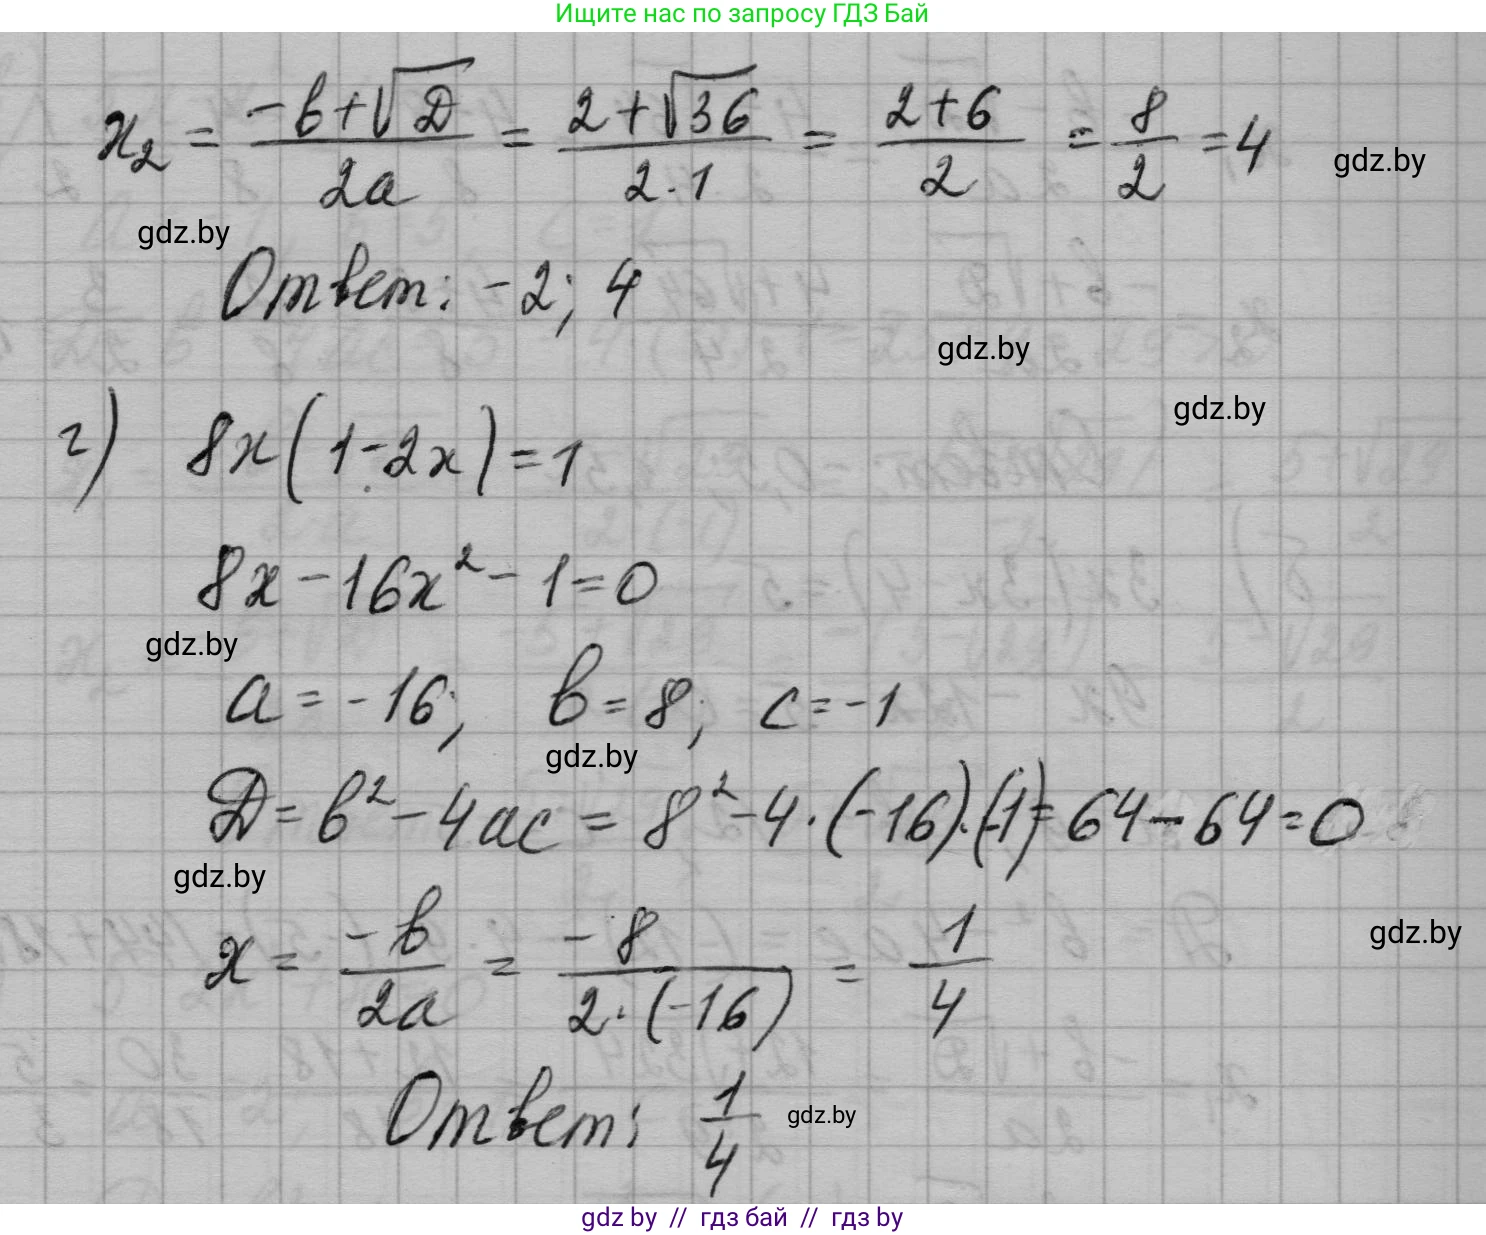 Ищите нас по запросу ГДЗ Бай
x₂ = (-b+√D)/(2a) = (2+√36)/(2·1) = (2+6)/2 = 8/2 = 4
gdz.by
gdz.by
Ответ: -2; 4
gdz.by
gdz.by
г) 8x(1-2x)=1
8x-16x²-1=0
gdz.by
a=-16; b=8; c=-1
gdz.by
D=b²-4ac=8²-4·(-16)·(-1)=64-64=0
gdz.by
gdz.by
x = -b/(2a) = -8/(2·(-16)) = 1/4
Ответ: 1/4
gdz.by
gdz by // гдз бай // гдз by